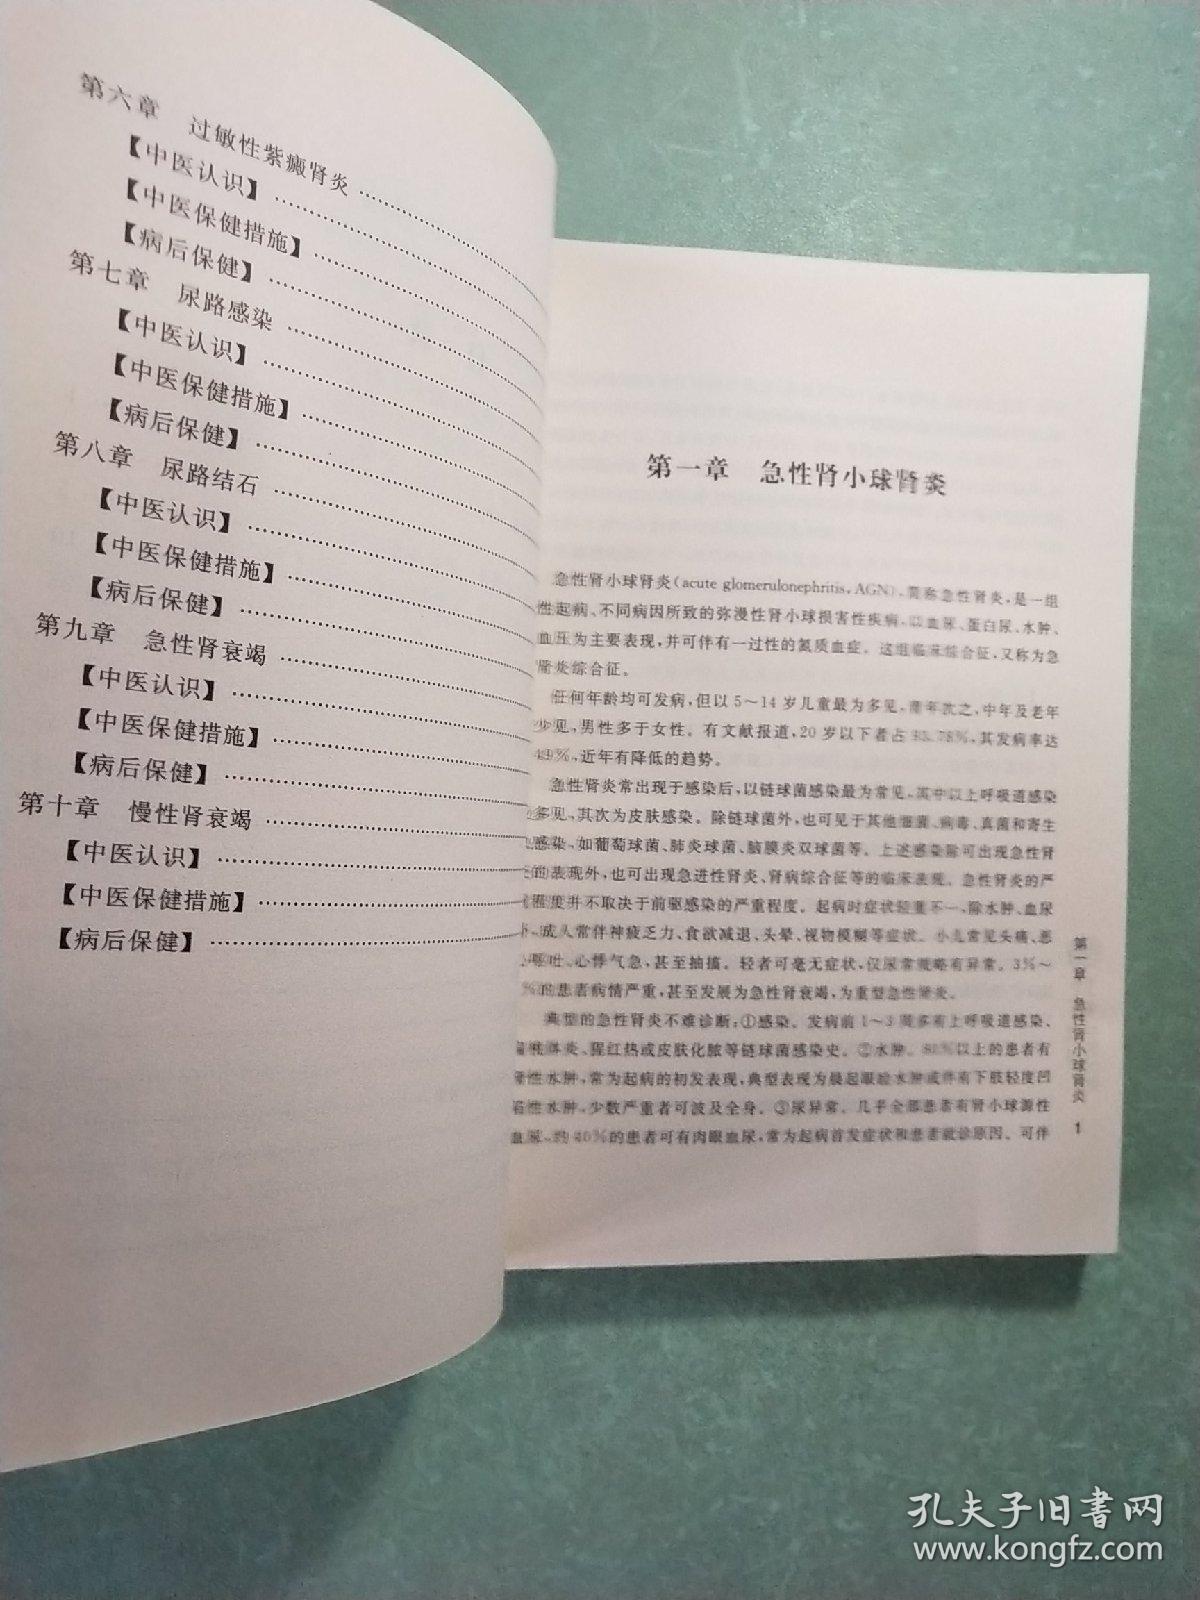 第六章 过敏性紫癜肾炎
【中医认识】
【中医保健措施】
【病后保健】
第七章 尿路感染
【中医认识】
【中医保健措施】
【病后保健】
第八章 尿路结石
【中医认识】
【中医保健措施】
【病后保健】
第九章 急性肾衰竭
【中医认识】
【中医保健措施】
【病后保健】
第十章 慢性肾衰竭
【中医认识】
【中医保健措施】
【病后保健】
第一章 急性肾小球肾炎
急性肾小球肾炎(acute glomerulonephritis,AGN),简称急性肾炎,是一组
性起病、不同病因所致的弥漫性肾小球损害性疾病,以血尿、蛋白尿、水肿、
血压为主要表现,并可伴有一过性的氮质血症。这组临床综合征,又称为急
肾炎综合征。
任何年龄均可发病,但以5～14岁儿童最为多见,青年次之,中年及老年
少见,男性多于女性。有文献报道,20岁以下者占 .78%,其发病率达
%,近年有降低的趋势。
急性肾炎常出现于感染后,以链球菌感染最为常见,其中以上呼吸道感染
多见,其次为皮肤感染。除链球菌外,也可见于其他细菌、病毒、真菌和寄生
感染,如葡萄球菌、肺炎球菌、脑膜炎双球菌等。上述感染除可出现急性肾
的表现外,也可出现急进性肾炎、肾病综合征等的临床表现。急性肾炎的严
程度并不取决于前驱感染的严重程度。起病时症状轻重不一,除水肿、血尿
外,成人常伴神疲乏力、食欲减退、头晕、视物模糊等症状。小儿常见头痛、恶
心呕吐、心悸气急,甚至抽搐。轻者可毫无症状,仅尿常规略有异常。3%～
%的患者病情严重,甚至发展为急性肾衰竭,为重型急性肾炎。
典型的急性肾炎不难诊断:①感染。发病前1～3周多有上呼吸道感染、
扁桃体炎、猩红热或皮肤化脓等链球菌感染史。②水肿。80%以上的患者有
性水肿,常为起病的初发表现,典型表现为晨起眼睑水肿或伴有下肢轻度凹
陷性水肿,少数严重者可波及全身。③尿异常。几乎全部患者有肾小球源性
血尿,约40%的患者可有肉眼血尿,常为起病首发症状和患者就诊原因。可伴
第一章 急性肾小球肾炎
1
孔夫子旧书网
www.kongfz.com